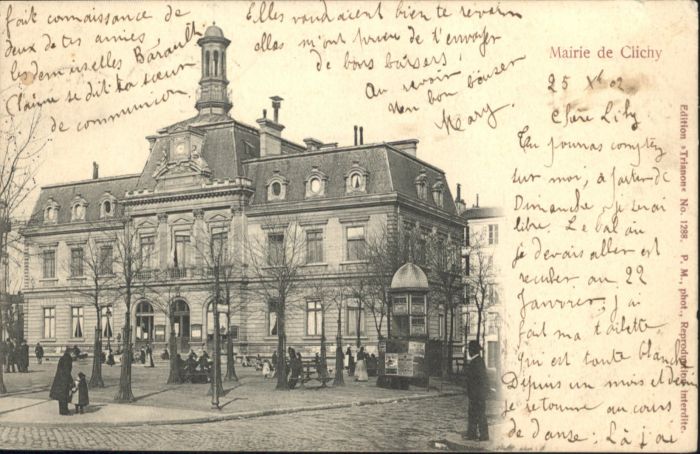 Mairie de Clichy
25 Xbre 02
Chère Lily
Tu pourras compter
sur moi, à partir de
Dimanche je serai
libre. Le bal où
je devais aller est
reculer au 22
Janvier; j'ai
fait ma toilette
qui est toute blanche
Depuis un mois et demi
je retourne au cours
de danse; Là j'ai
fait connaissance de
deux de tes amies,
les demoiselles Barault
Claire se dit ta sœur
de communion
Elles voudraient bien te revoir
elles m'ont prier de t'envoyer
de bons baisers,
Au revoir
Un bon baiser
Mary.
Edition »Trianon« No. 1288. P. M., phot., Reproduction interdite.